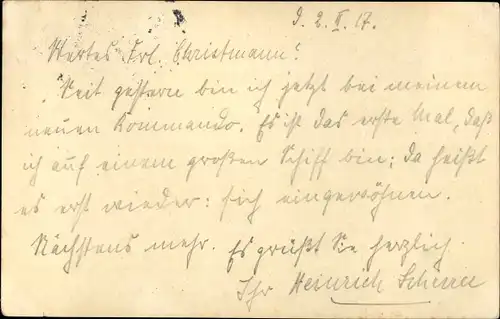 d. 2. II. 17.
Wertes Frl. Christmann!
Seit gestern bin ich jetzt bei meinem
neuen Kommando. Es ist das erste Mal, daß
ich auf einem großen Schiff bin; da heißt
es erst wieder: sich eingewöhnen.
Nächstens mehr. Es grüßt Sie herzlich
Ihr Heinrich